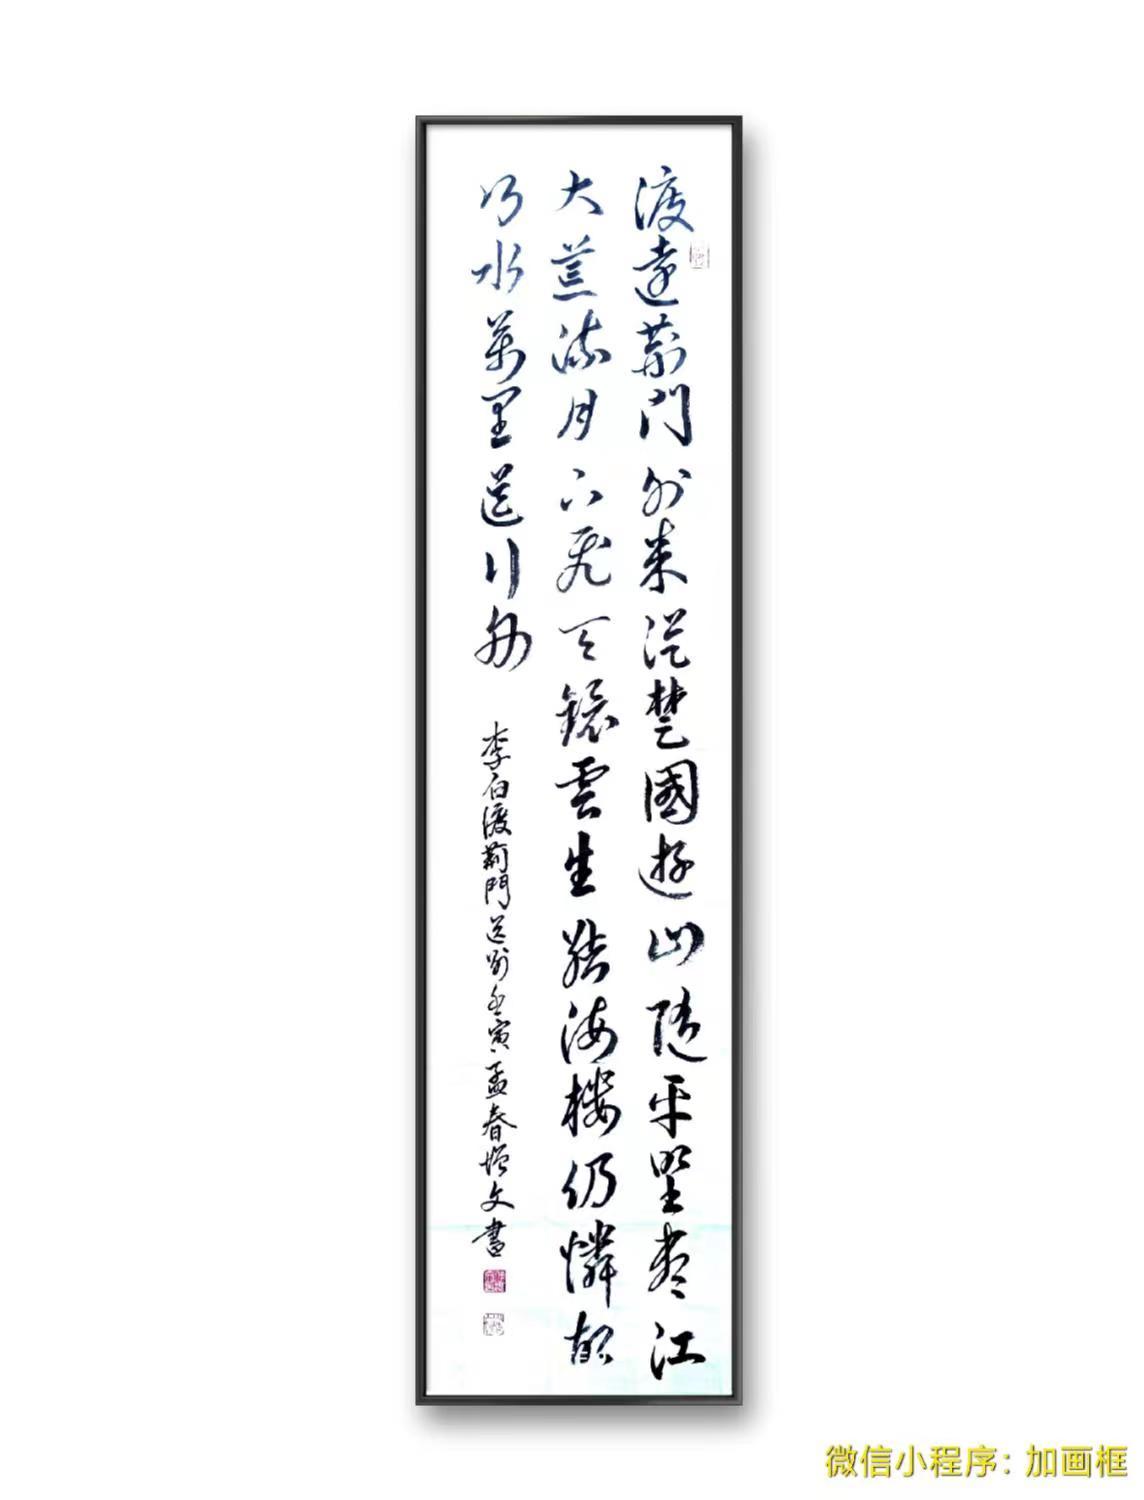 渡遠荊門外来從楚國遊山隨平野盡江
大荒流月下飛天鏡雲生結海樓仍憐故
鄉水萬里送行舟
李白渡荊門送別壬寅孟春增文書
微信小程序：加画框